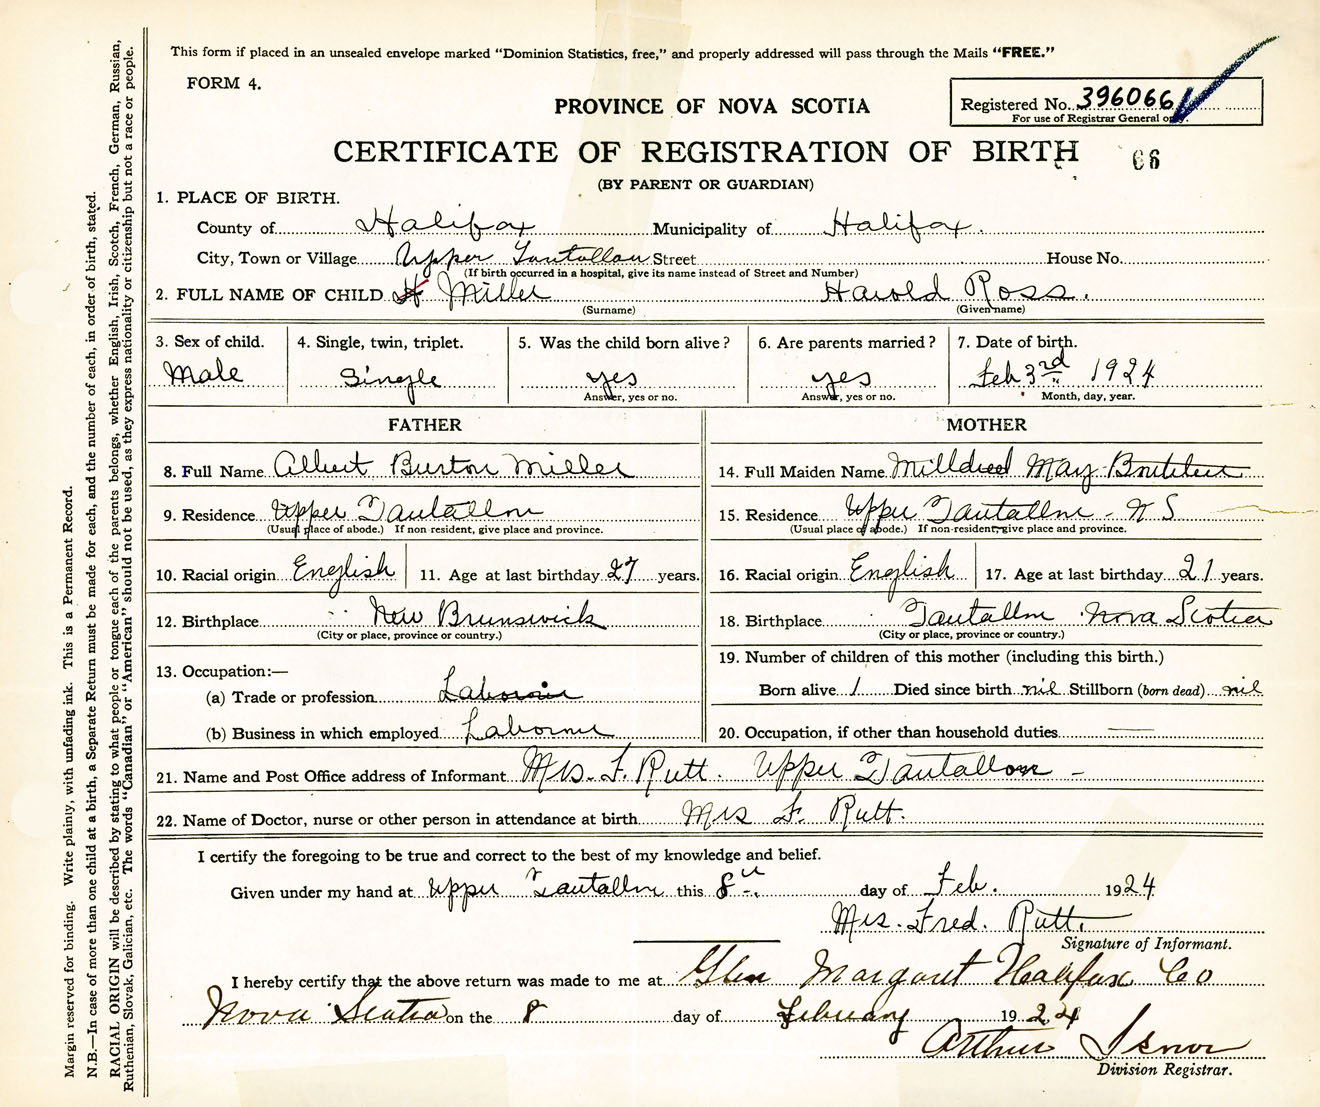 This form if placed in an unsealed envelope marked “Dominion Statistics, free,” and properly addressed will pass through the Mails “FREE.”
FORM 4.
Registered No. 396066
For use of Registrar General only.
PROVINCE OF NOVA SCOTIA
CERTIFICATE OF REGISTRATION OF BIRTH 66
(BY PARENT OR GUARDIAN)
1. PLACE OF BIRTH.
County of Halifax Municipality of Halifax.
City, Town or Village Upper Tantallon Street House No.
(If birth occurred in a hospital, give its name instead of Street and Number)
2. FULL NAME OF CHILD H Miller Harold Ross.
(Surname) (Given name)
3. Sex of child. 4. Single, twin, triplet. 5. Was the child born alive? 6. Are parents married? 7. Date of birth.
Male Single yes yes Feb 3rd 1924
Answer, yes or no. Answer, yes or no. Month, day, year.
FATHER MOTHER
8. Full Name Albert Burton Miller 14. Full Maiden Name Milldred May Boutilier
9. Residence Upper Tantallon 15. Residence Upper Tantallon - N S
(Usual place of abode.) If non-resident, give place and province. (Usual place of abode.) If non-resident, give place and province.
10. Racial origin English 11. Age at last birthday 27 years. 16. Racial origin English 17. Age at last birthday 21 years.
12. Birthplace New Brunswick 18. Birthplace Tantallon Nova Scotia
(City or place, province or country.) (City or place, province or country.)
13. Occupation:— 19. Number of children of this mother (including this birth.)
(a) Trade or profession Born alive 1 Died since birth nil Stillborn (born dead) nil
(b) Business in which employed 20. Occupation, if other than household duties
21. Name and Post Office address of Informant Mrs. F. Rutt. Upper Tantallon -
22. Name of Doctor, nurse or other person in attendance at birth Mrs F. Rutt.
I certify the foregoing to be true and correct to the best of my knowledge and belief.
Given under my hand at Upper Tantallon this 8th day of Feb. 1924
Mrs. Fred. Rutt.
Signature of Informant.
I hereby certify that the above return was made to me at Glen Margaret Halifax Co
Nova Scotia on the 8 day of February 1924
Arthur Isnor
Division Registrar.
Margin reserved for binding. Write plainly, with unfading ink. This is a Permanent Record.
N.B.—In case of more than one child at a birth, a Separate Return must be made for each, and the number of each, in order of birth, stated.
RACIAL ORIGIN will be described by stating to what people or tongue each of the parents belongs, whether English, Irish, Scotch, French, German, Russian,
Ruthenian, Slovak, Galician, etc. The words “Canadian” or “American” should not be used, as they express nationality or citizenship but not a race or people.